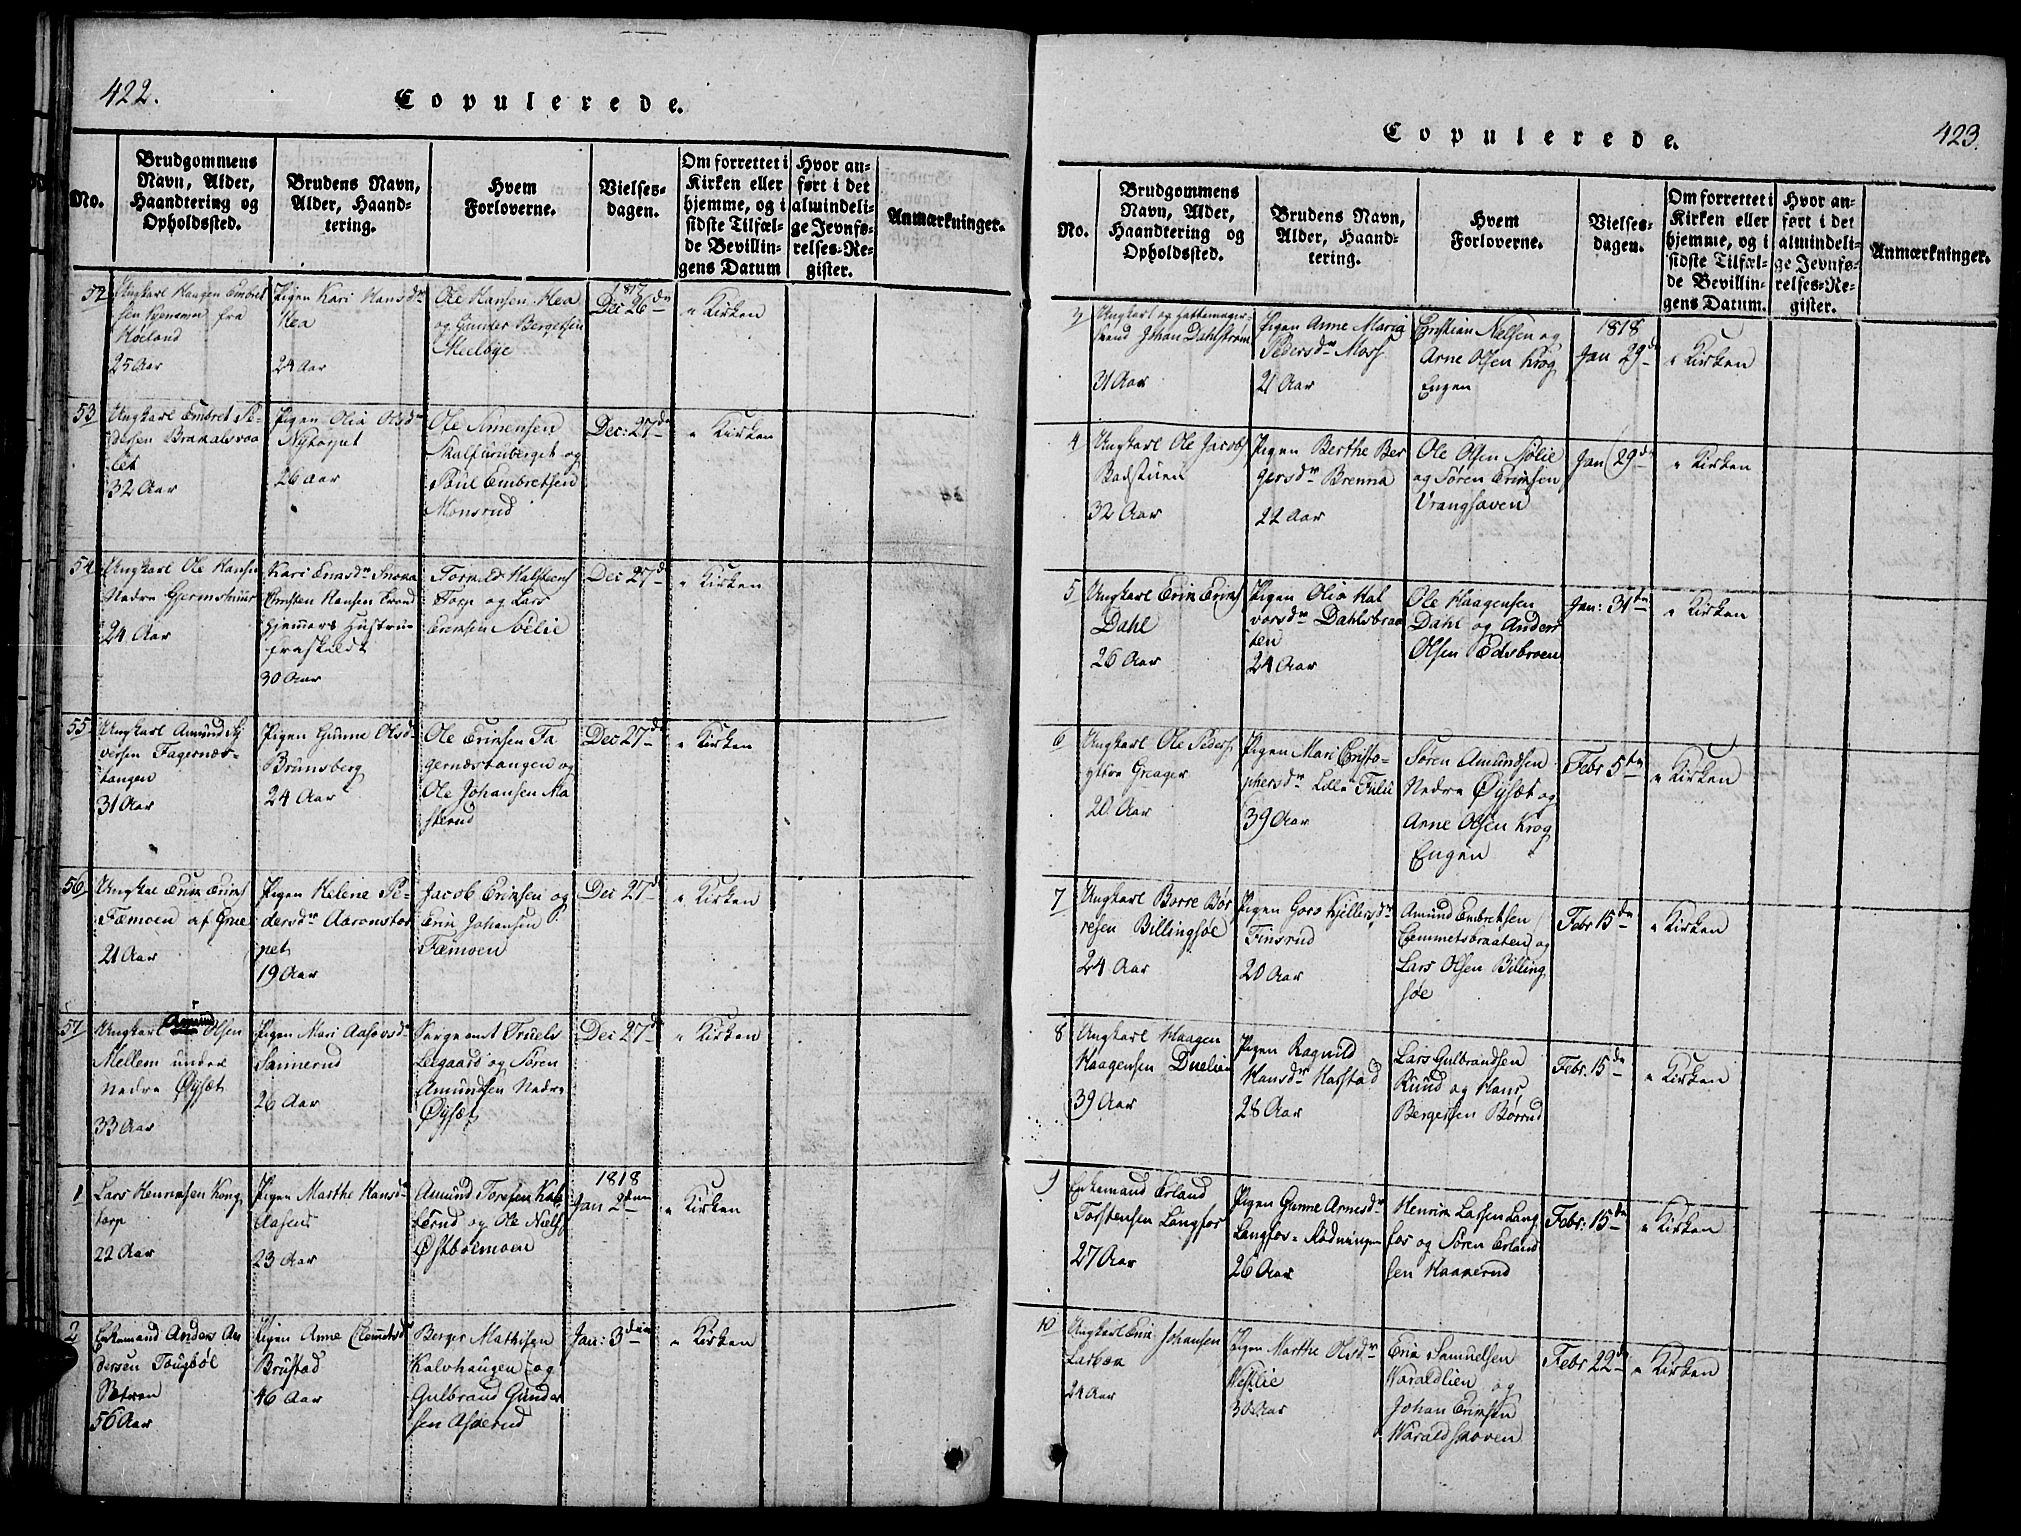 422.
Copulerede.
No.
Brudgommens
Navn, Alder,
Haandtering og
Opholdssted.
Brudens Navn,
Alder, Haand-
tering.
Hvem
Forloverne.
Vielses-
dagen.
Om forrettet i
Kirken eller
hjemme, og i
sidste Tilfæl-
de Bevillin-
gens Datum
Hvor an-
ført i det
almindeli-
ge Jevnfø-
relses-Re-
gister.
Anmærkninger.
52
Ungkarl Haagen Embret
sen fra
Høland
25 Aar
Pigen Kari Hansdr
Hea
24 Aar
Ole Hansen Hea
og Gunder Bergersen
Meelbye
1817
Dec 26de
" Kirken
53
Ungkarl Embret Pe-
dersen
let
32 Aar
Pigen Olia Olsdr
Nytorpet
26 Aar
Ole Simensen
Kalfurüberget og
Poül Embretsen
Monsrud
Dec: 27de
" Kirken
54
Ungkarl Ole Hansen
Nedre Gjermshuus
24 Aar
Kari
Hansen
Hustru
fraskildt
30 Aar
Halsteens
Torp og Lars
Ericksen Nólie
Dec 27d
" Kirken
55
Ungkarl Amund Sy
versen Fagernæs-
tangen
31 Aar
Pigen Gunne Olsd
Brunsberg
24 Aar
Ole Ericksen Fa
gernæstangen og
Ole Johansen Ma
sterud
Dec 27d
" Kirken
56
Ungkal Erik Erics
Fæmoen af Grue
21 Aar
Pigen Helene Pe-
dersdr Aaronstor
pet
19 Aar
Jacob Ericksen og
Eric Johansen
Fæmoen
Dec 27d
" Kirken
57
Ungkarl Amund Olsen
Mellem under
Nedre Øyset
33 Aar
Pigen Mari
Sannerud
26 Aar
Sergeant Truels
Leegaard og Sören
Amundsen Nedre
Øyset
Dec 27d
" Kirken
1
Lars Henriksen Kong
torp
22 Aar
Pigen Marthe Hansdr
Aasen
23 Aar
Amund Torersen Kal
ferud og Ole Niels
Østbölmoen
1818
Jan 2den
" Kirken
2
Enkemand Anders An
dersen Tougböl
Ættren
56 Aar
Pigen Anne Clemmetsdr
Brustad
46 Aar
Berger Mathisen
Kalvhaugen og
Gulbrand Gunder
sen Asserud
Jan: 3den
" Kirken
423.
Copulerede.
No.
Brudgommens
Navn, Alder,
Haandtering og
Opholdssted.
Brudens Navn,
Alder, Haand-
tering.
Hvem
Forloverne.
Vielses-
dagen.
Om forrettet i
Kirken eller
hjemme, og i
sidste Tilfæl-
de Bevillin-
gens Datum.
Hvor an-
ført i det
almindeli-
ge Jevnfø-
relses-Re-
gister.
Anmærkninger.
3
Ungkarl og Hattemager-
svend Johan Dahlström
31 Aar
Pigen Anne Maria
Pedersdr Moss
21 Aar
Christian Nelsen og
Arne Olsen Krog
Engen
1818
Jan 29d
" Kirken
4
Ungkarl Ole Jacobs
Badstuen
32 Aar
Pigen Berthe Ber
gersdr Brenna
22 Aar
Ole Olsen Sölie
og Sören Ericksen
Vranghaven
Jan 29d
" Kirken
5
Ungkarl Erik Ericks
Dahl
26 Aar
Pigen Olia Hal
vorsdr Dahlsbraa
ten
24 Aar
Ole Haagensen
Dahl og Anders
Olsen Edsbroen
Jan: 31te
" Kirken
6
Ungkarl Ole Peders
yttre Greager
20 Aar
Pigen Mari Christo-
phersdr Lille Fulu
39 Aar
Sören Amundsen
Nedre Øysæt og
Arne Olsen Krog
Engen
Febr 5te
" Kirken
7
Ungkarl Borre Bör
resen Billingsöe
24 Aar
Pigen Goro Kjellersdr
Finsrud
20 Aar
Amund Embretsen
Clemmetsbraaten og
Lars Olsen Billing
söe
Febr 15de
" Kirken
8
Ungkarl Haagen
Haagensen Duelien
39 Aar
Pigen Ragnild
Hansdr Harstad
28 Aar
Lars Gulbrandsen
Ruud og Hans
Bergersen Börrud
Febr. 15de
" Kirken
9
Enkemand Erland
Torstensen Langfos
27 Aar
Pigen Gunne Arnesdr
Langfos-Rödningen
26 Aar
Henrik Larsen Lang
fos og Sören Erland
sen Haaverud
Febr: 15de
" Kirken
10
Ungkarl Eric Johansen
Larbek
24 Aar
Pigen Marthe Olsdr
Vestlie
30 Aar
Eric Samuelsen
Varaldlien og
Johan Ericksen
Varaldskoven
Febr 22d
" Kirken